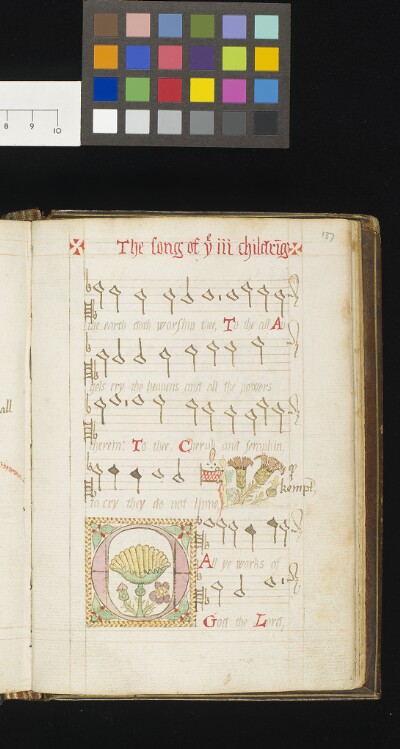 8 9 10
137
all
The song of yͤ iii childrē
the earth doth worship thee, To the all A
gels cry the heavens and all the powers
therein: To thee Cherub and seraphin,
qᵈ kempt,
to cry they do not linne,
All ye works of
God the Lord,